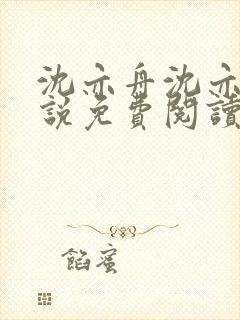 沈亦舟沈亦
說免費閱讀
餡蜜